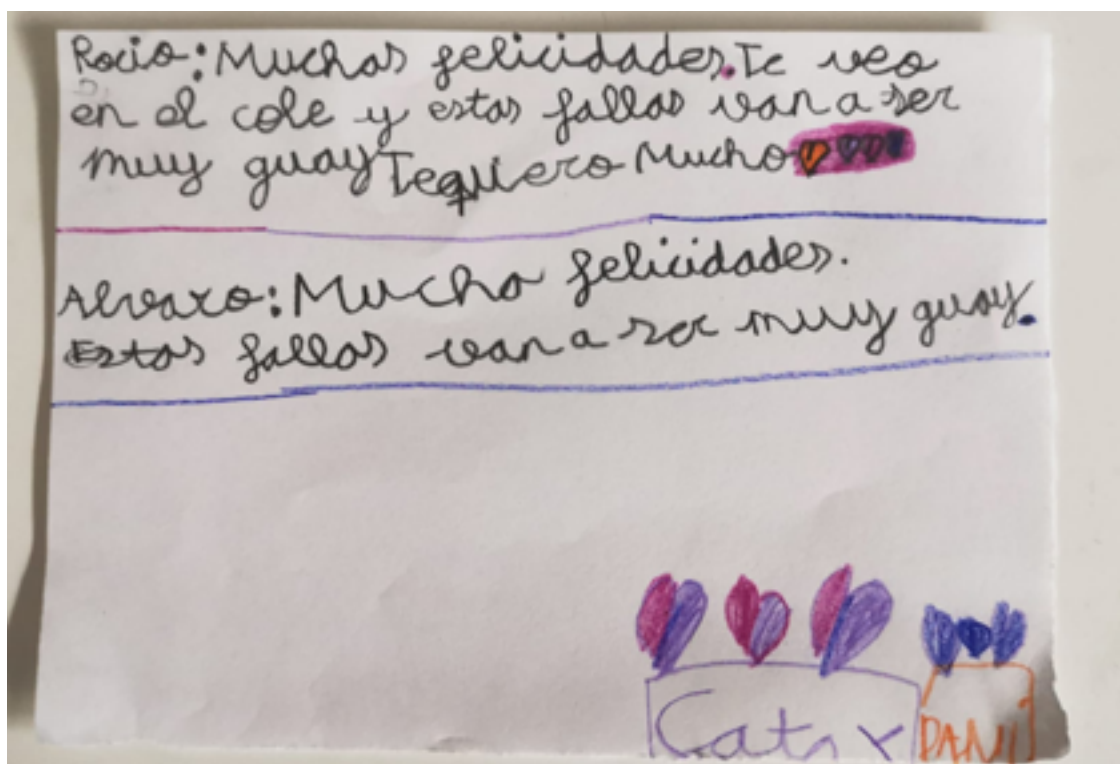 Rocio: Muchas felicidades. Te veo
en el cole y estas fallas van a ser
muy guay Te quiero Mucho
Alvaro: Mucha felicidades.
Estas fallas van a ser muy guay.
Cata y DANI